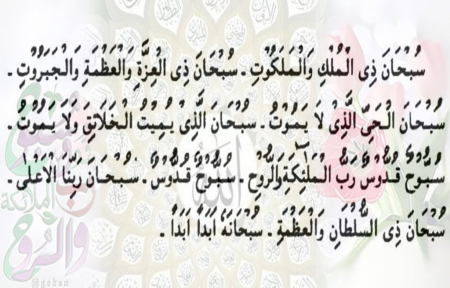 سُبْحَانَ ذِى الْمُلْكِ وَالْمَلَكُوْتِ ـ سُبْحَانَ ذِى الْعِزَّةِ وَالْعَظَمَةِ وَالْجَبَرُوْتِ ـ
سُبْحَانَ الْحَىِّ الَّذِىْ لَا يَمُوْتُ ـ سُبْحَانَ الَّذِىْ يُمِيْتُ الْخَلَائِقَ وَلَا يَمُوْتُ ـ
سُبُّوْحٌ قُدُّوْسٌ رَبُّ الْمَلٰٓئِكَةِ وَالرُّوْحِ ـ سُبُّوْحٌ قُدُّوْسٌ ـ سُبْحَانَ رَبِّنَا الْاَعْلٰى ـ
سُبْحَانَ ذِى السُّلْطَانِ وَالْعَظَمَةِ ـ سُبْحَانَهٗ اَبَدًا اَبَدًا ـ
الله
الملائكة
والروح